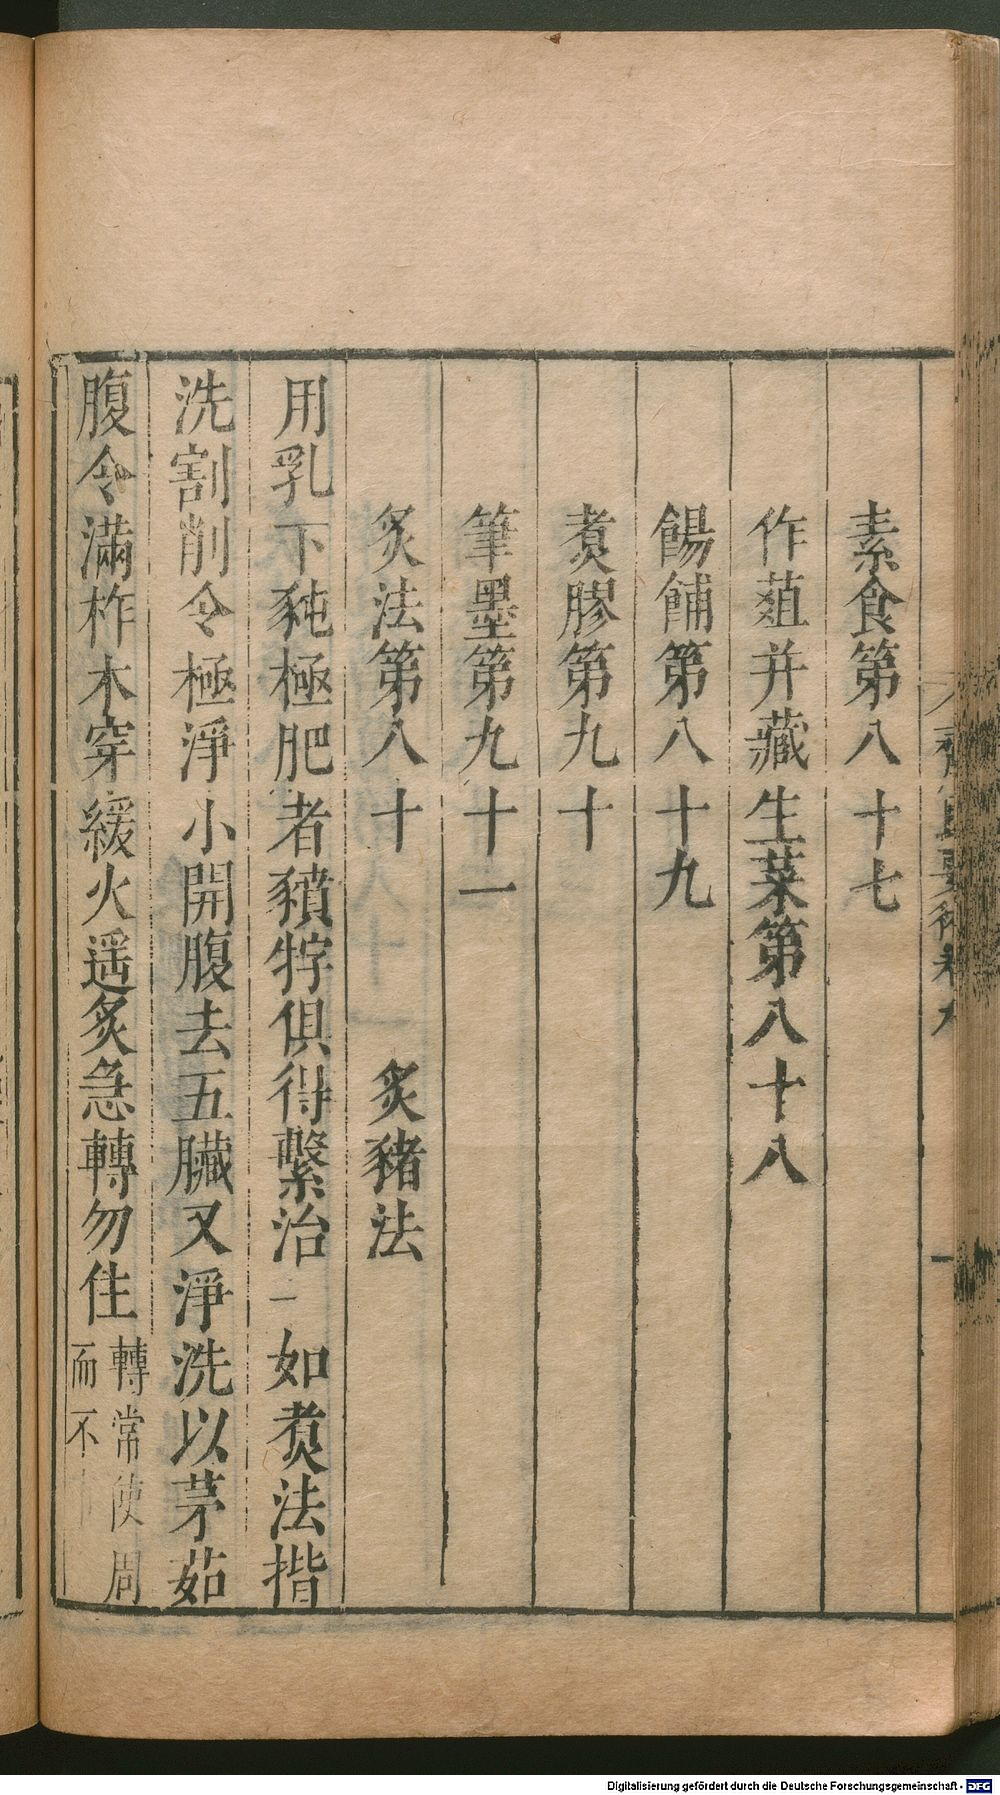 素食第八十七
作葅并藏生菜第八十八
餳餔第八十九
煑膠第九十
筆墨第九十一
炙法第八十 炙豬法
用乳下㹠極肥者豶牸俱得繫治一如煑法揩
洗割削令極淨小開腹去五臟又淨洗以茅茹
腹令滿柞木穿緩火遥炙急轉勿住轉常使周
而不
齊民要術卷九
一
Digitalisierung gefördert durch die Deutsche Forschungsgemeinschaft - DFG